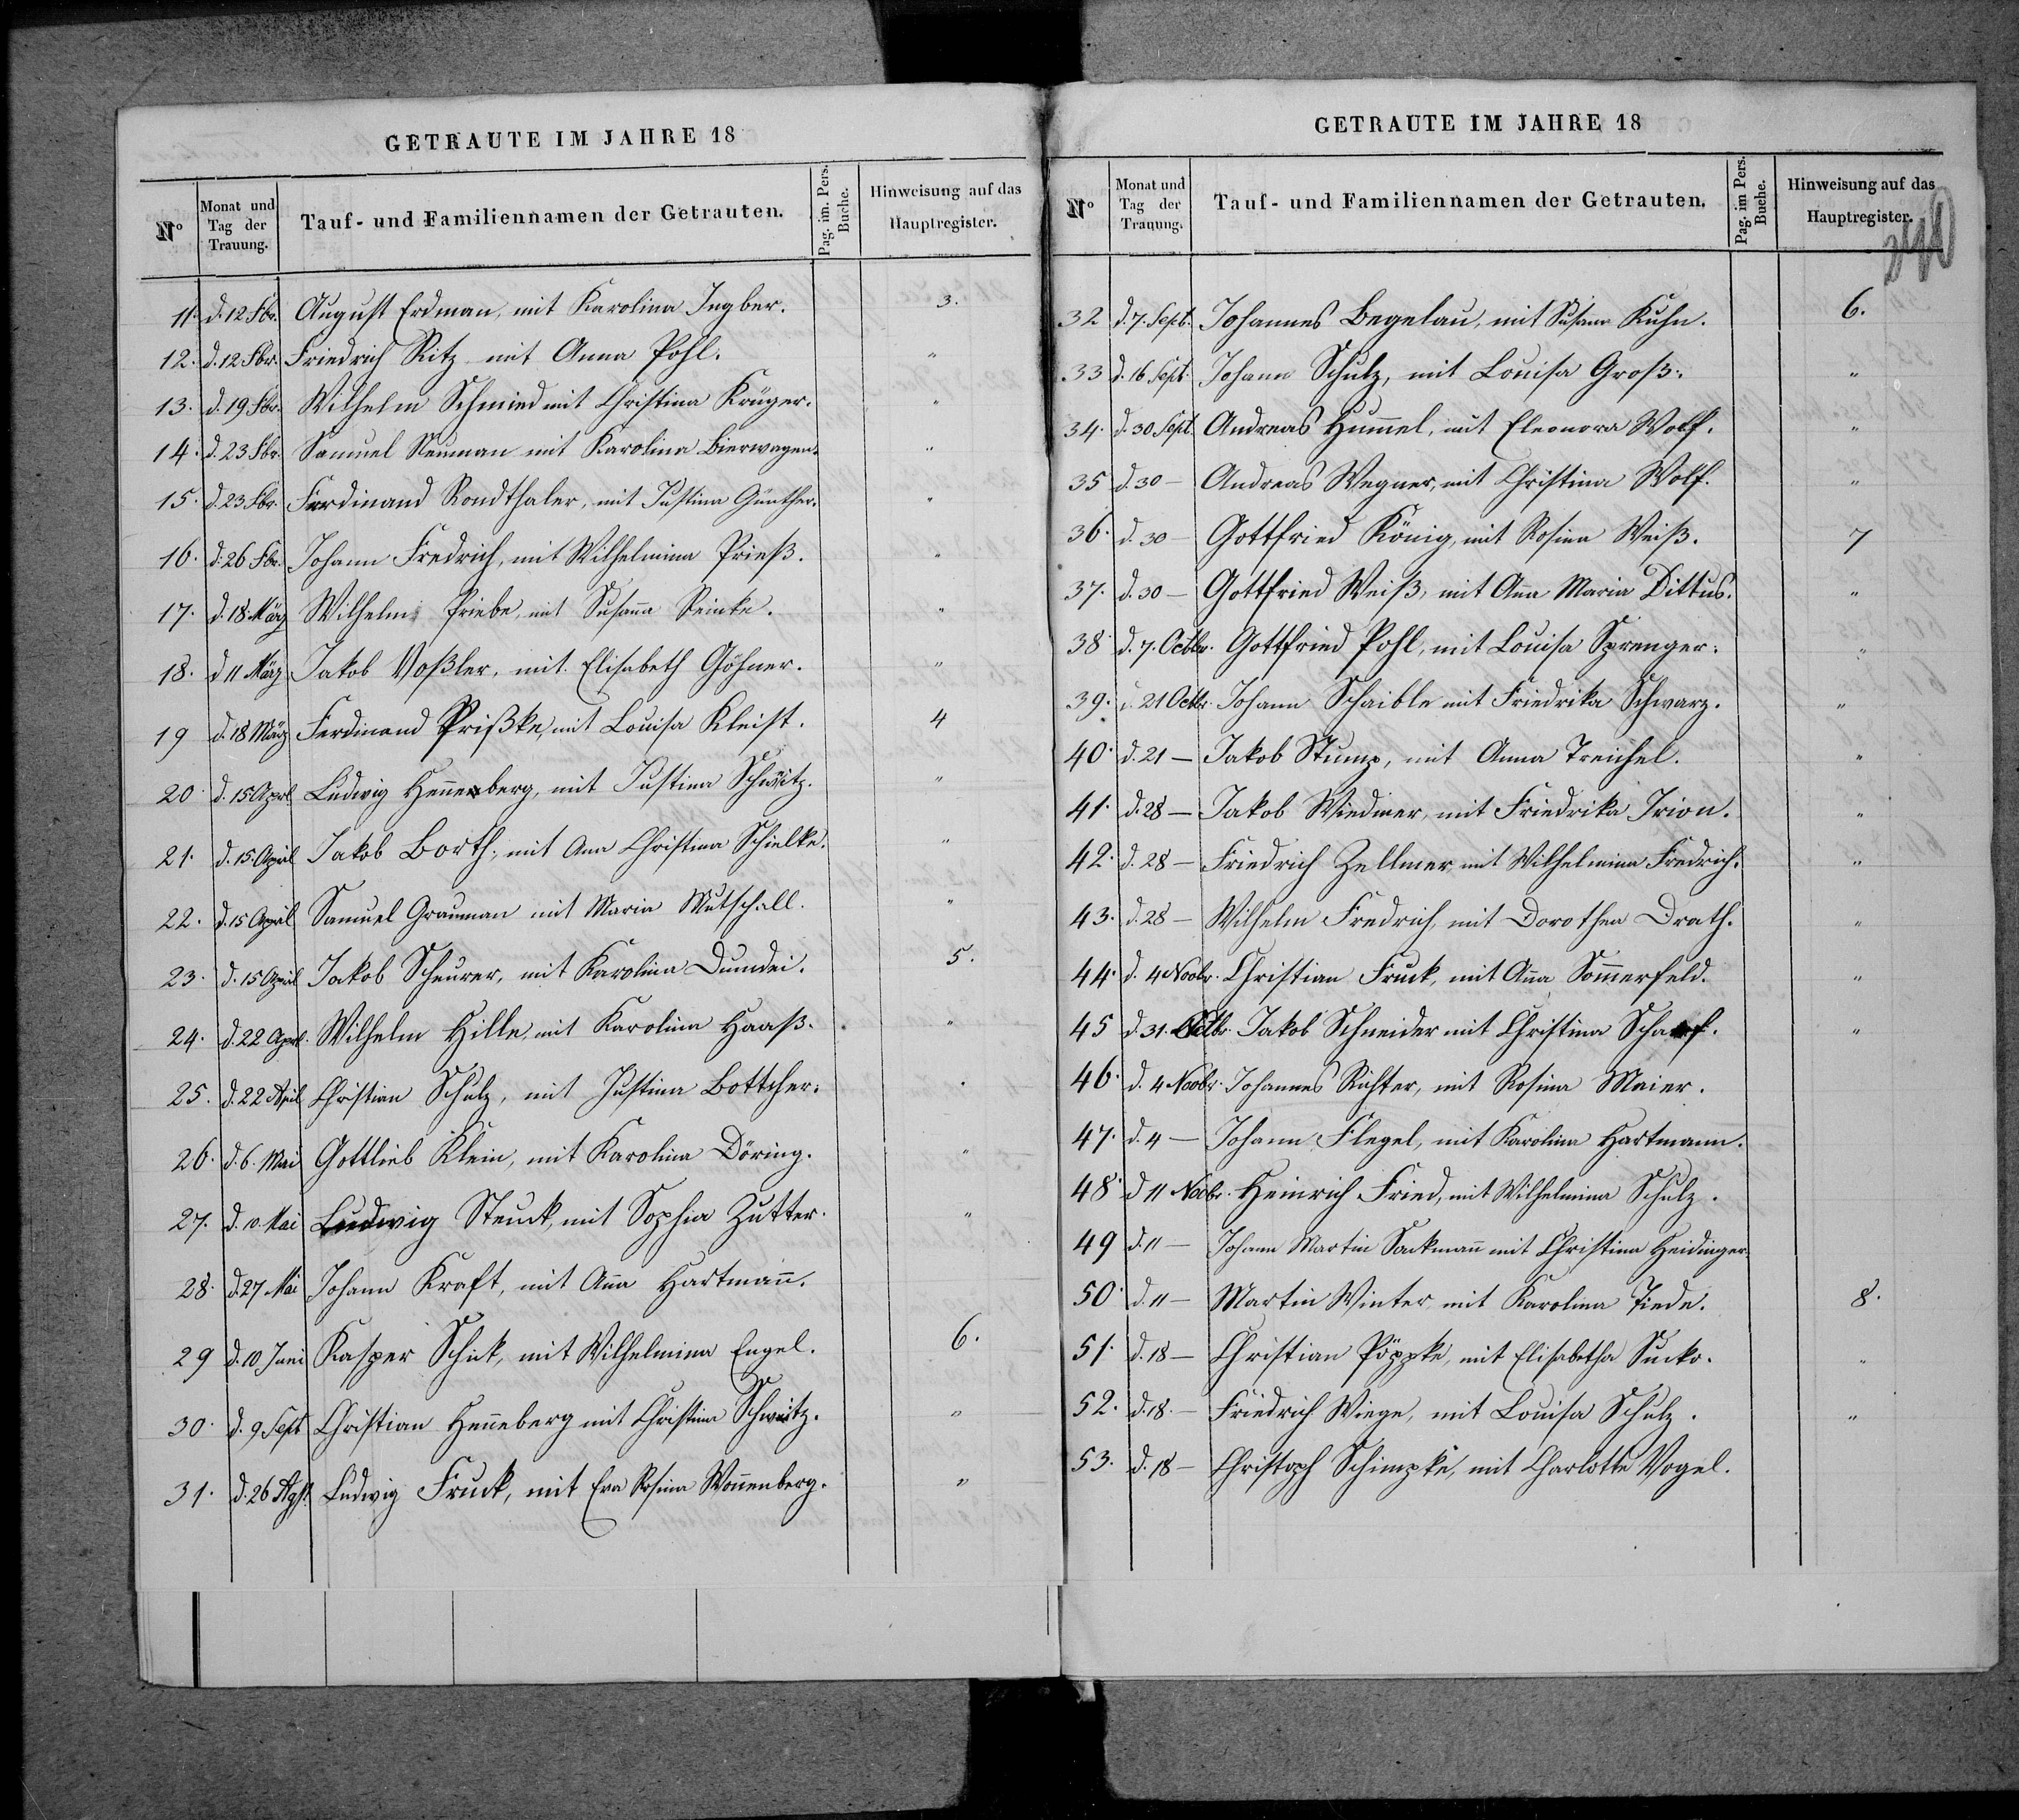 GETRAUTE IM JAHRE 18
No Monat und Tag der Trauung. Tauf- und Familiennamen der Getrauten. Pag. im. Pers. Buche. Hinweisung auf das Hauptregister.
11. d. 12 Fbr. August Erdman, mit Karolina Ingber. 3.
12. d. 12 Fbr. Friedrich Ritz mit Anna Pohl. "
13. d. 19 Fbr. Wilhelm Schmied mit Christina Krüger. "
14. d. 23 Fbr. Samuel Neuman mit Karolina Bierwagen. "
15. d. 23 Fbr. Ferdinand Rondthaler, mit Justina Günther. "
16. d. 26 Fbr. Johann Fredrich, mit Wilhelmina Prieß. "
17. d. 18 März Wilhelm Priebe, mit Susana Reinke. "
18. d 11 März Jakob Voßler, mit Elisabeth Göhner. "
19 d. 18 März Ferdinand Prißke, mit Louisa Kleist. 4
20 d. 15 Aprl Ludwig Henneberg, mit Justina "
21. d. 15. April Jakob Borth, mit Ana Christina Schielke. "
22. d. 15 April Samuel Grauman mit Maria Mutschall. "
23. d. 15 April Jakob Scheurer, mit Karolina Dumdei. 5.
24. d. 22 Aprl. Wilhelm Hille, mit Karolina Haaß. "
25. d. 22 April Christian Schulz, mit Justina Bottcher. "
26. d. 6. Mai Gottlieb Klein, mit Karolina Döring. "
27. d. 10 Mai Ludwig Steuck, mit Sophia Zutter. "
28. d. 27 Mai Johann Kraft, mit Ana Hartman.
29 d. 10 Juni Kasper Schick, mit Wilhelmina Engel. 6.
30. d. 9 Sept Christian Heneberg mit Christina "
31. d. 26 Agst. Ludwig Fruck, mit Eva Rosina Wonenberg. "
GETRAUTE IM JAHRE 18
No Monat und Tag der Trauung. Tauf- und Familiennamen der Getrauten. Pag. im Pers. Buche. Hinweisung auf das Hauptregister.
32 d. 7. Sept. Johannes Begelau, mit Susana Kuhn. 6.
33 d. 16 Sept. Johann Schulz, mit Louisa Groß. "
34. d. 30 Sept Andreas Humel, mit Eleonora Wolf. "
35 d. 30 – Andreas Wegner, mit Christina Wolf. "
36. d. 30 – Gottfried König, mit Rosina Weiß. 7
37. d. 30 – Gottfried Weiß, mit Ana Maria Dittus. "
38 d. 7. Octbr. Gottfried Pohl, mit Louisa Sprenger. "
39. d. 21 Octbr. Johann Schaible mit Friedrika Schwarz. "
40. d. 21 – Jakob Stump, mit Anna Treichel. "
41. d. 28 – Jakob Wiedmer, mit Friedrika Irion. "
42. d. 28 – Friedrich Zellmer, mit Wilhelmina Fredrich. "
43. d. 28 – Wilhelm Fredrich, mit Dorothea Drath. "
44. d. 4 Novbr. Christian Fruck, mit Ana Somerfeld. "
45 d. 31. Octbr Jakob Schneider mit Christina Scharf. "
46. d. 4 Novbr. Johannes Richter, mit Rosina Maier.
47. d. 4 – Johann Flegel, mit Karolina Hartmann.
48. d 11 Novbr. Heinrich Fried, mit Wilhelmina Schulz.
49 d. 11 – Johann Martin Sackman mit Christina Heidinger.
50. d. 11 – Martin Winter, mit Karolina Tiede. 8.
51. d. 18 – Christian Pöppke, mit Elisabetha Sucko. "
52. d. 18. – Friedrich Wiege, mit Louisa Schulz. "
53. d. 18 – Christoph Schimpke, mit Charlotte Vogel.